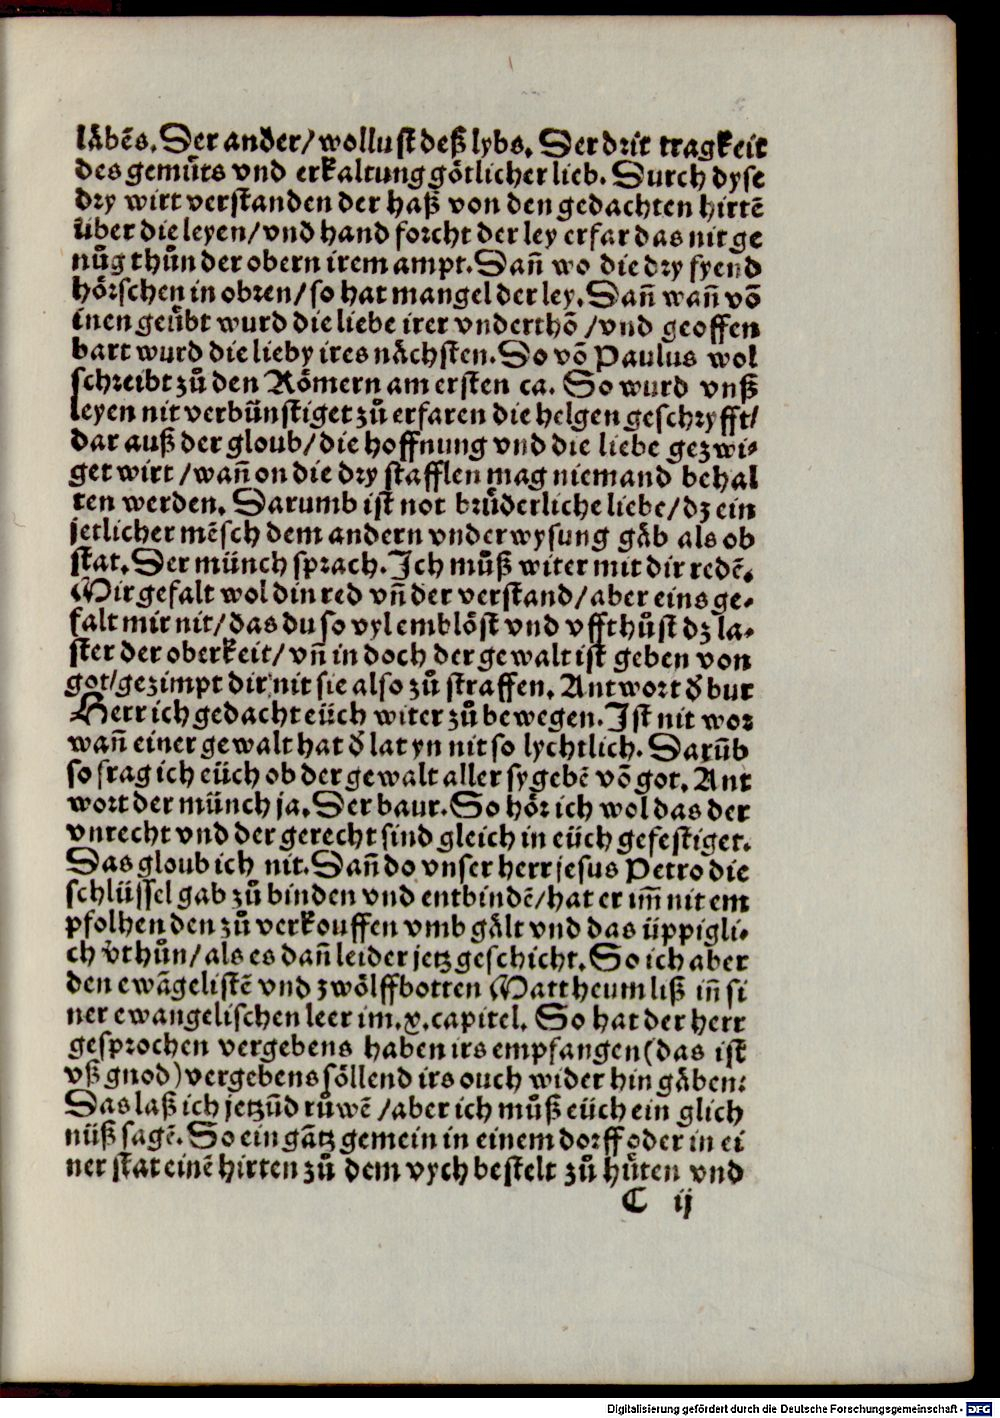 läbẽs. Der ander/ wollust deß lybs. Der drit tragkeit
des gemüts vnd erkaltung götlicher lieb. Durch dyse
dry wirt verstanden der haß von den gedachten hirtẽ
über die leyen/ vnd hand forcht der ley erfar das nit ge
nůg thůn der obern irem ampt. Dañ wo die dry fyend
hörschen in obren/ so hat mangel der ley. Dañ wañ võ
inen geübt wurd die liebe irer vnderthõ /vnd geoffen
bart wurd die lieby ires nächsten. So võ Paulus wol
schreibt zů den Römern am ersten ca. So wurd vnß
leyen nit verbünstiget zů erfaren die helgen geschryfft/
dar auß der gloub/ die hoffnung vnd die liebe gezwi⸗
get wirt /wañ on die dry stafflen mag niemand behal
ten werden. Darumb ist not brüderliche liebe/ dz ein
jetlicher mẽsch dem andern vnderwysung gäb als ob
stat. Der münch sprach. Ich můß witer mit dir redẽ.
Mir gefalt wol din red vñ der verstand/ aber eins ge⸗
falt mir nit/ das du so vyl emblöst vnd vffthůst dz la⸗
ster der oberkeit/ vñ in doch der gewalt ist geben von
got/ gezimpt dir nit sie also zů straffen. Antwort d̕ bur
Herr ich gedacht eüch witer zů bewegen. Ist nit wor
wañ einer gewalt hat d̕ lat yn nit so lychtlich. Darũb
so frag ich eüch ob der gewalt aller sy gebẽ võ got. Ant
wort der münch ja. Der baur. So hör ich wol das der
vnrecht vnd der gerecht sind gleich in eüch gefestiget.
Das gloub ich nit. Dañ do vnser herr jesus Petro die
schlüssel gab zů binden vnd entbindẽ/ hat er im̃ nit em
pfolhen den zů verkouffen vmb gält vnd das üppigli⸗
ch v̕thůn/ als es dañ leider jetz geschicht. So ich aber
den ewãgelistẽ vnd zwölffbotten Mattheum liß iñ si
ner ewangelischen leer im .x. capitel. So hat der herr
gesprochen vergebens haben irs empfangen (das ist
vß gnod) vergebens söllend irs ouch wider hin gäben:
Das laß ich jetzũd růwẽ /aber ich můß eüch ein glich
nüß sagẽ. So ein gãtz gemein in einem dorff oder in ei
ner stat einẽ hirten zů dem vych bestelt zů hüten vnd
C ij
Digitalisierung gefördert durch die Deutsche Forschungsgemeinschaft - DFG